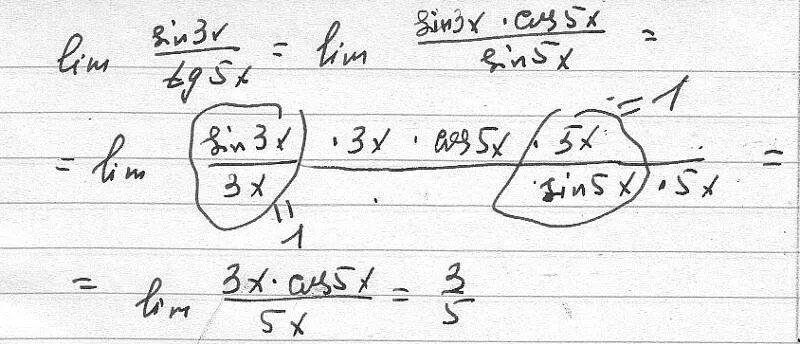 lim sin3x / tg5x = lim sin3x · cos5x / sin5x =
= lim sin3x / 3x · 3x · cos5x · 5x / sin5x · 5x =
= 1
= 1
= lim 3x · cos5x / 5x = 3 / 5